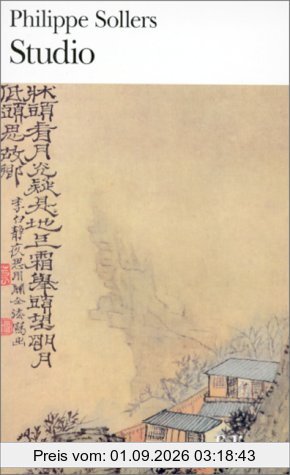 Philippe Sollers
Studio
牀頭看月光疑是地上霜舉頭望明月
低頭思故鄉
李白靜夜思用關仝法寫
Preis vom: 01.09.2026 03:18:43